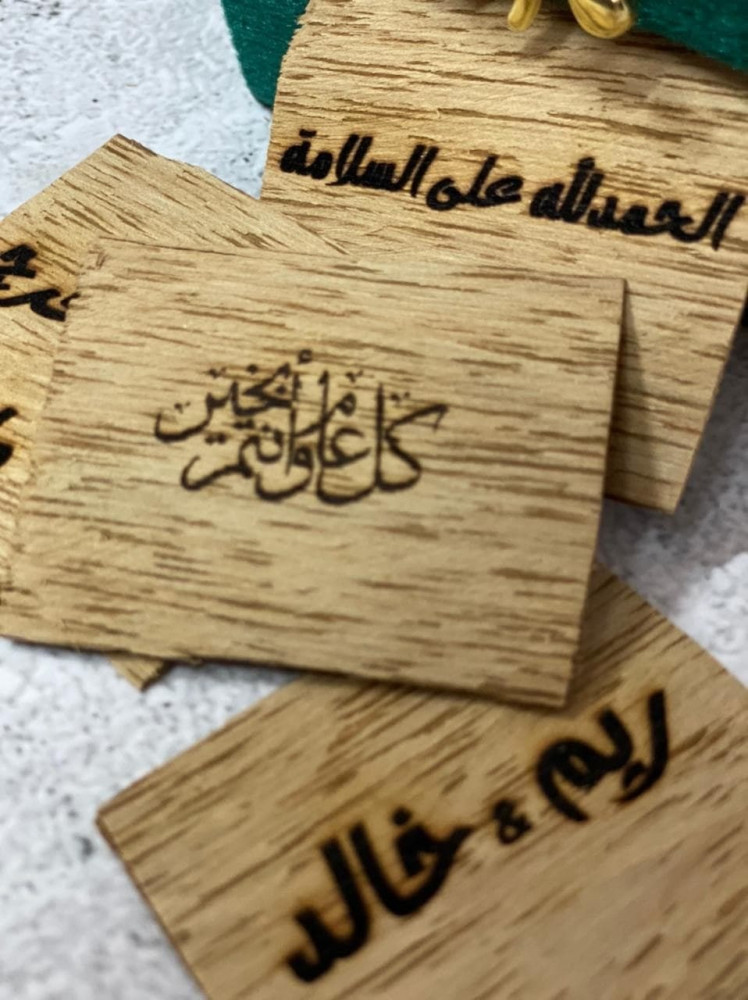 الحمدلله على السلامة
كل عام وأنتم بخير
ريم & خالد